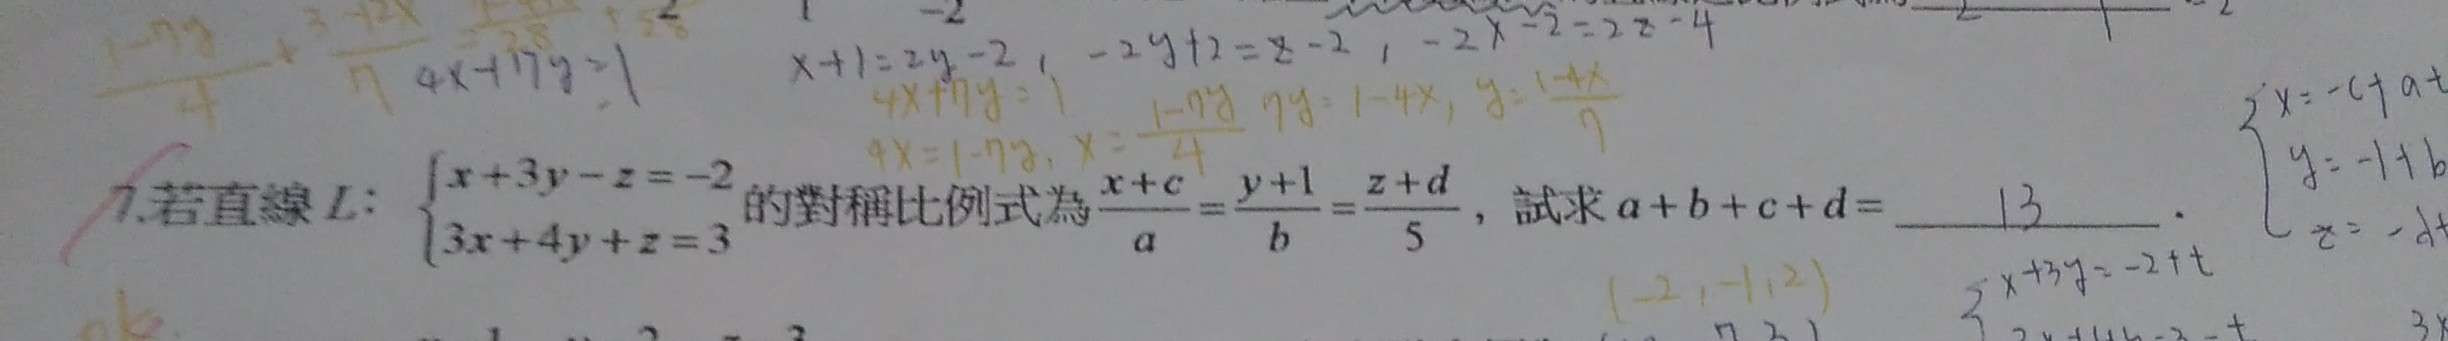 1-7y/4 + 3-12x/7
4x+17y=1
x+1=2y-2, -2y+2=z-2, -2x-2=2z-4
4x+7y=1
4x=1-7y, x=1-7y/4 7y=1-4x, y=1-4x/7
7.若直線L: {x+3y-z=-2 3x+4y+z=3 的對稱比例式為 x+c/a = y+1/b = z+d/5 , 試求 a+b+c+d= 13 .
{x=-c+at
y=-1+b
z=-d+
(-2,-1,2)
{x+3y=-2+t
ok